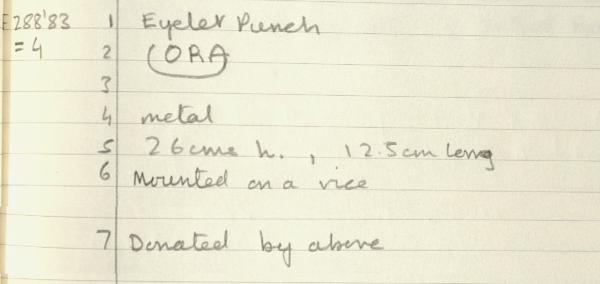 E288'83 1 Eyelet Punch
= 4 2 (ORA)
3
4 metal
5 26cms h., 12.5cm Long
6 Mounted on a vice
7 Donated by above